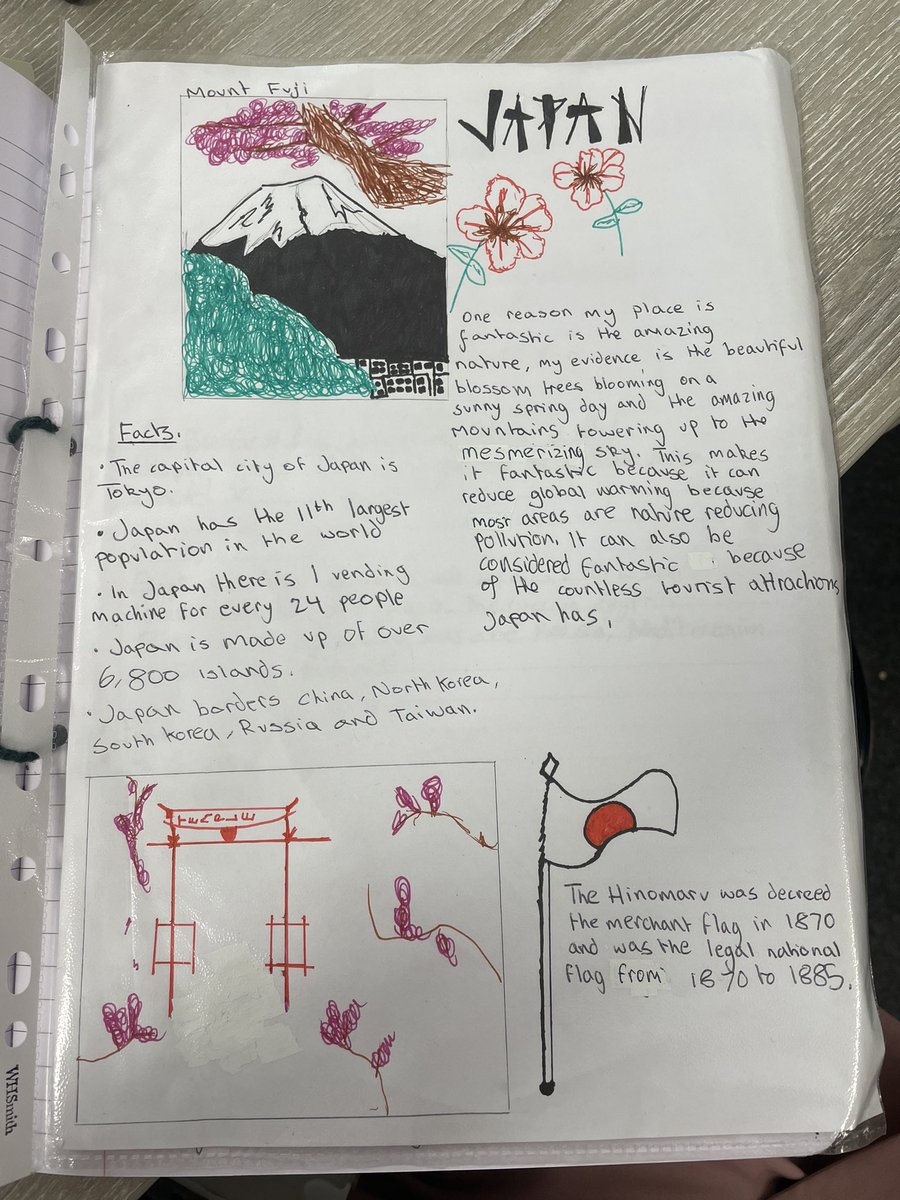 Mount Fuji
JAPAN
One reason my place is
fantastic is the amazing
nature, my evidence is the beautiful
blossom trees blooming on a
sunny spring day and the amazing
mountains towering up to the
mesmerizing sky. This makes
it fantastic because it can
reduce global warming because
most areas are nature reducing
pollution. It can also be
considered fantastic because
of the countless tourist attractions
Japan has.
Facts.
• The capital city of Japan is
Tokyo.
• Japan has the 11th largest
population in the world
• In Japan there is 1 vending
machine for every 24 people
• Japan is made up of over
6,800 islands.
• Japan borders China, North Korea,
South Korea, Russia and Taiwan.
TEMPLE
The Hinomaru was decreed
the merchant flag in 1870
and was the legal national
flag from 1870 to 1885.
WHSmith